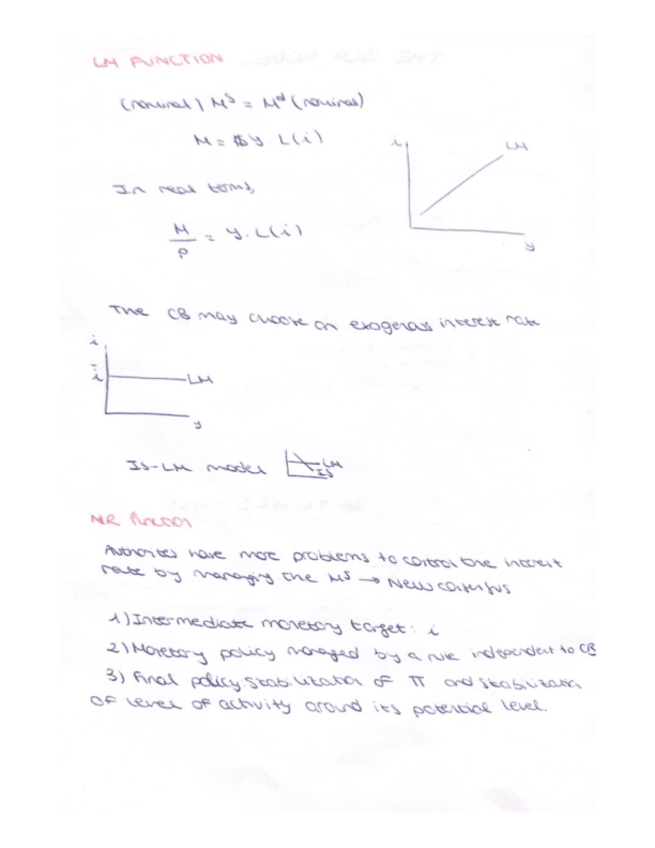 LM FUNCTION
(nominal) Mˢ = Mᵈ (nominal)
M = $Y · L(i)
i
LM
y
In real terms,
M/P = Y · L(i)
The CB may choose an exogenous interest rate
i
ī
LM
y
IS-LM model
LM
IS
MR function
Authorities have more problems to control the interest
rate by managing the Mˢ → New consensus
1) Intermediate monetary target: i
2) Monetary policy managed by a rule independent to CB
3) Final policy: stabilization of π and stabilization
of level of activity around its potential level.